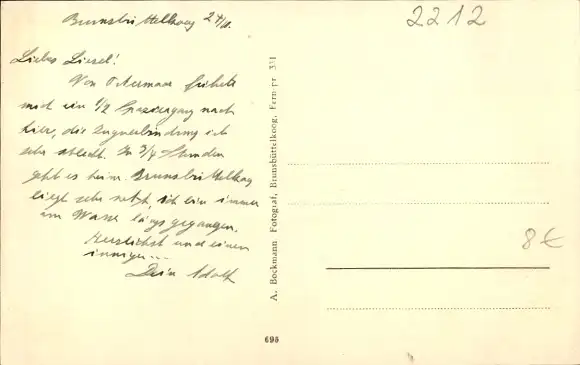 Brunsbüttelkoog 24/
Liebes Liesel!
Von führte
mich ein 1/2 Spaziergang nach
hier, die Zugverbindung ist
sehr schlecht. In 3/4 Stunden
geht es heim. Brunsbüttelkoog
liegt sehr nett, ich bin immer
am Wasser längs gegangen.
Herzlichst und einen
innigen...
Dein Adolf
2212
8€
A. Bockmann Fotograf, Brunsbüttelkoog, Fernspr 331
695